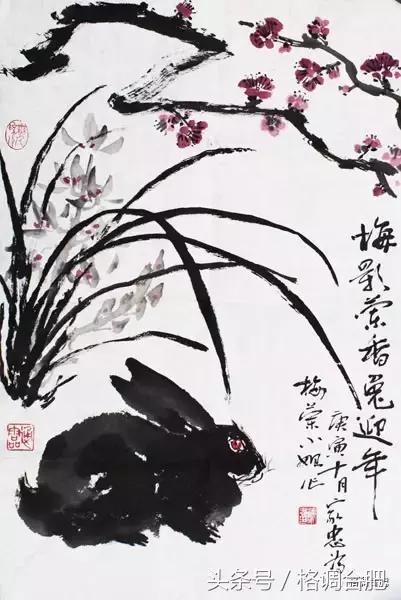 梅影蘭香兔迎年
庚寅十月家忠為
梅蘭小姐作
头条号 / 格调合肥